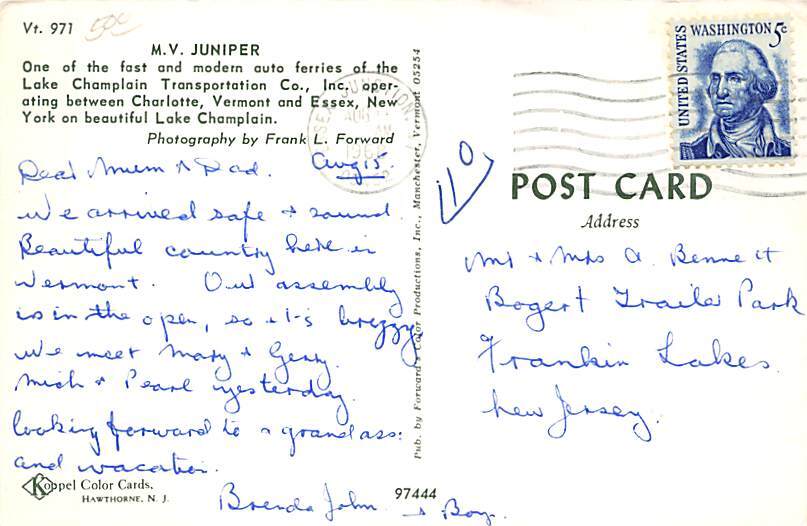 Vt. 971
50¢
M.V. JUNIPER
One of the fast and modern auto ferries of the
Lake Champlain Transportation Co., Inc. oper-
ating between Charlotte, Vermont and Essex, New
York on beautiful Lake Champlain.
Photography by Frank L. Forward
Dear Mum + Dad. Aug 15.
We arrived safe + sound.
Beautiful country here in
Vermont. Our assembly
is in the open, so it's breezy
We meet Mary + Gerry.
Mich + Pearl yesterday.
looking forward to a grand ass:
and vacation.
Brenda John + Boy.
Koppel Color Cards.
HAWTHORNE, N. J.
97444
Pub. by Forward's Color Productions, Inc., Manchester, Vermont 05254
JUNCTION
AUG
110
UNITED STATES
WASHINGTON 5¢
POST CARD
Address
Mr + Mrs A. Bennett
Bogert Trailer Park
Frankin Lakes
New Jersey.